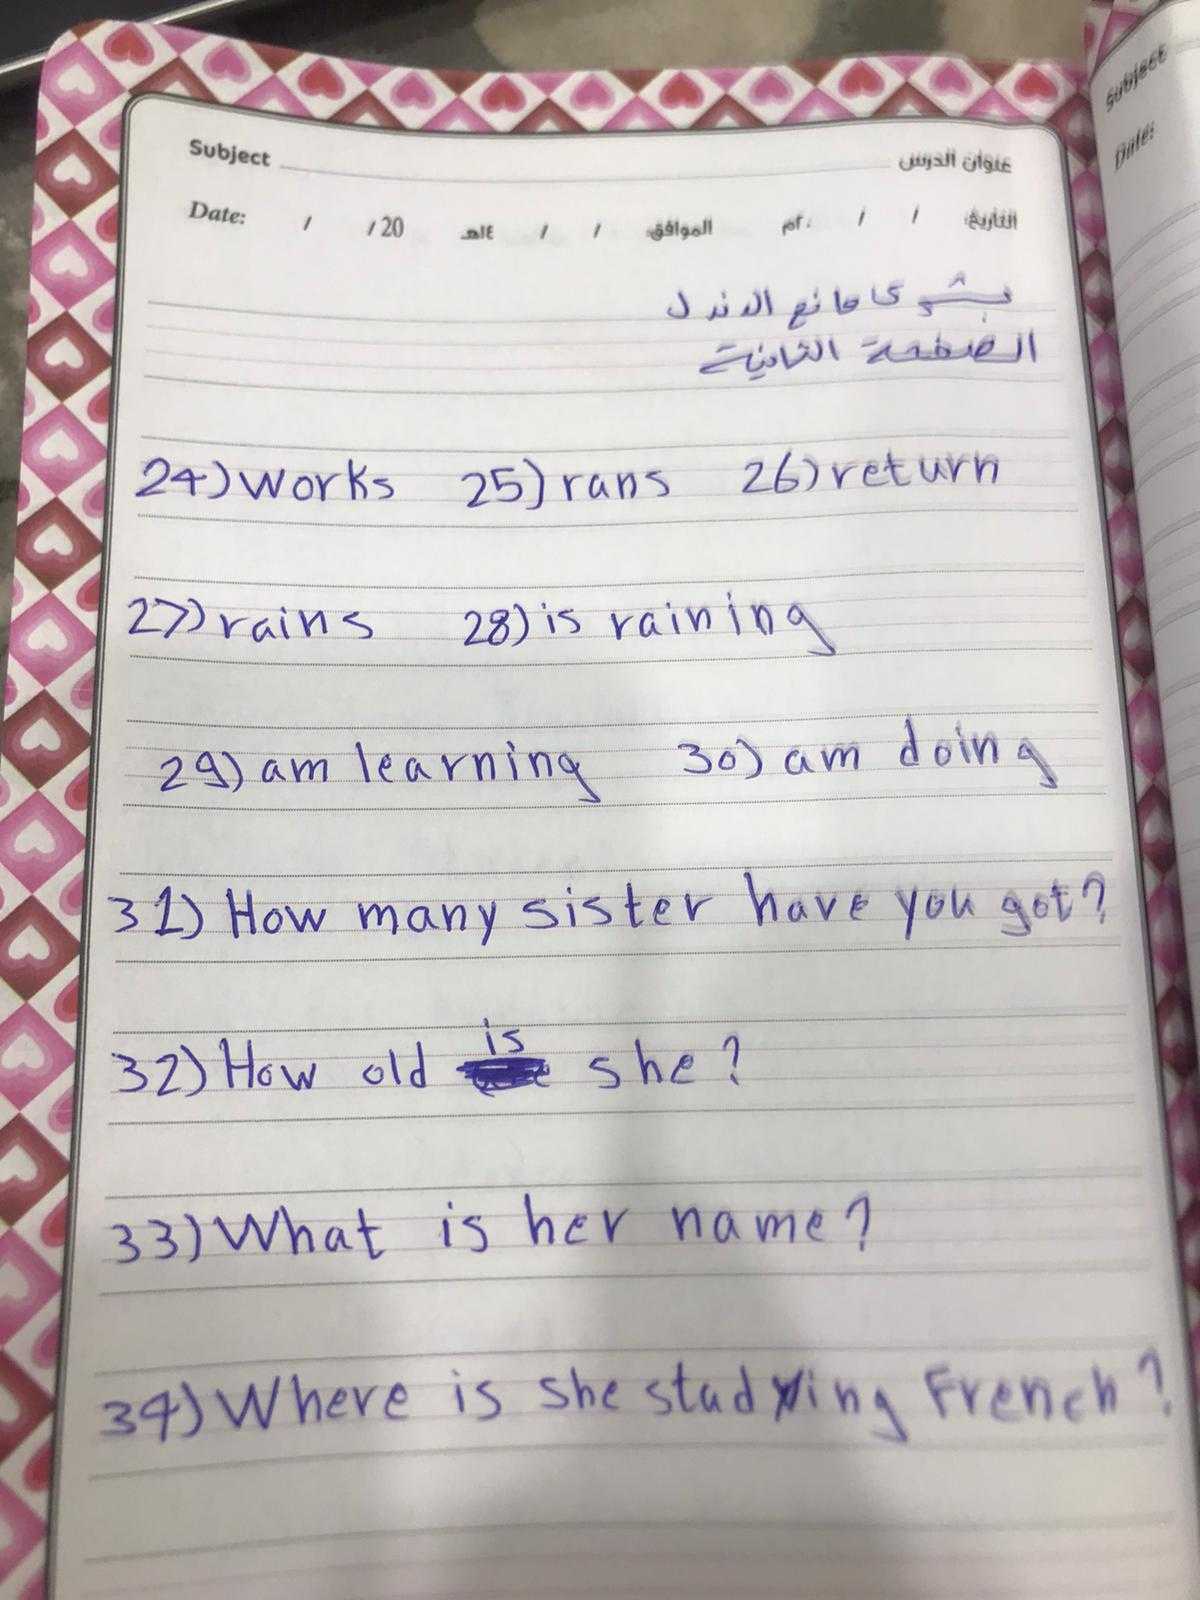 Subject عنوان الدرس
Date: / /20 ١٤هـ / / الموافق: ٢٠م / / التاريخ:
بشرى مانع الدندل
الصفحة الثانية
24) works 25) rans 26) return
27) rains 28) is raining
29) am learning 30) am doing
31) How many sister have you got?
32) How old is she?
33) What is her name?
34) Where is she studying French?
Subject
Date: